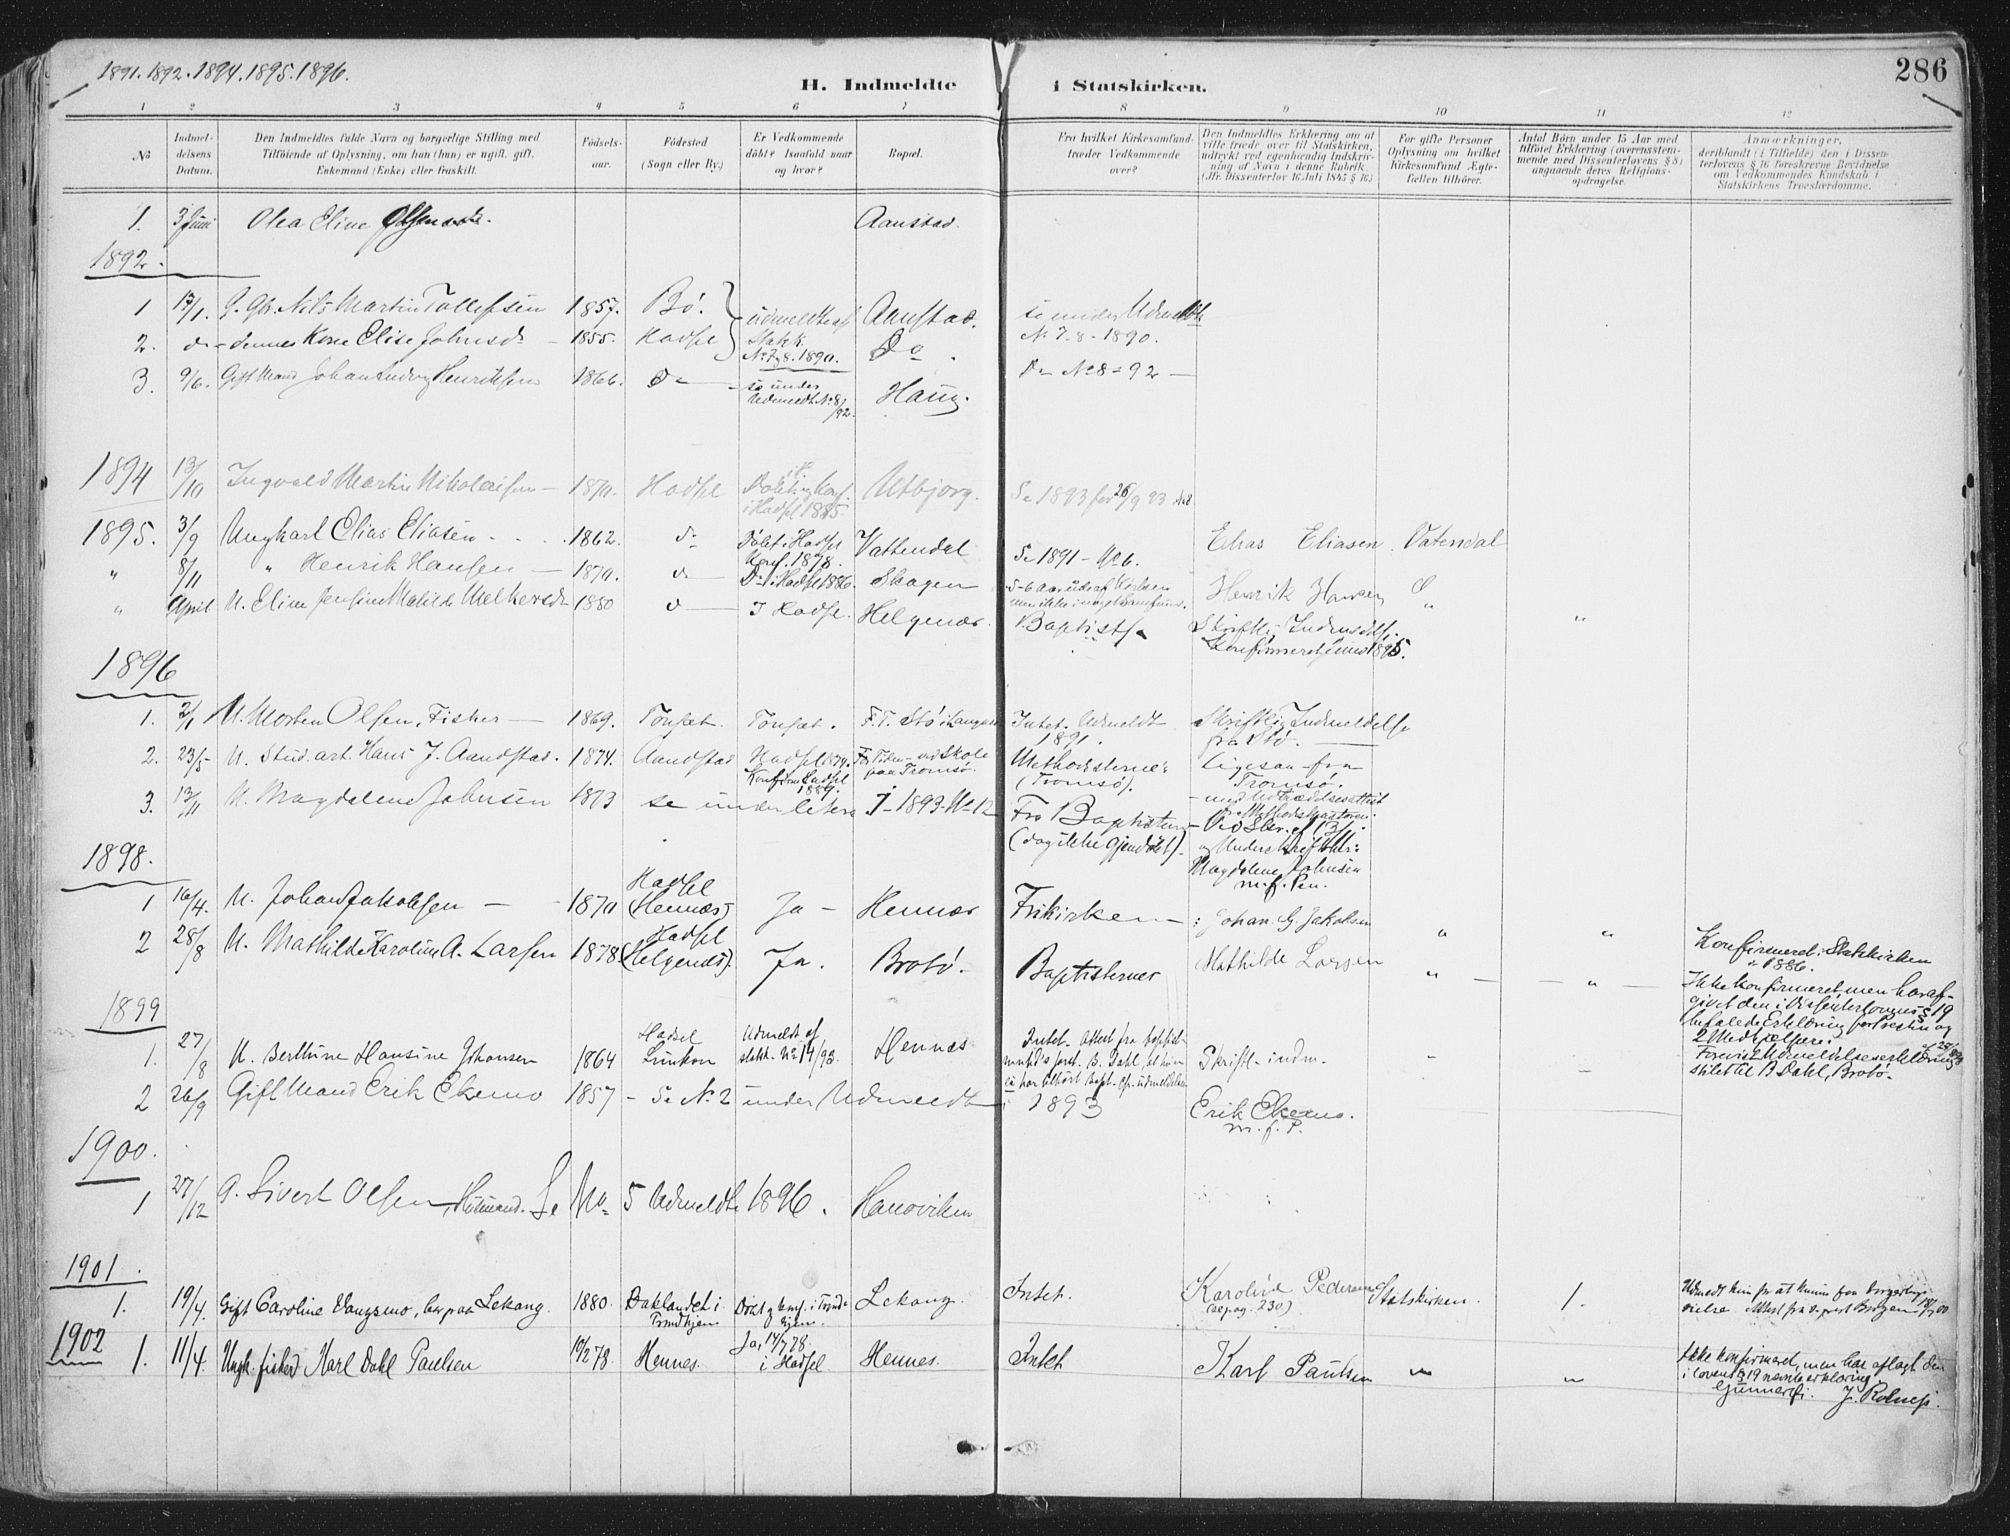 1891. 1892. 1894. 1895. 1896.
286
H. Indmeldte i Statskirken.
1 2 3 4 5 6 7 8 9 10 11 12
No
Indmeldelsens Datum.
Den Indmeldtes fulde Navn og borgerlige Stilling med Tilføiende af Oplysning, om han (hun) er ugift, gift, Enkemand (Enke) eller fraskilt.
Fødselsaar.
Fødested (Sogn eller By.)
Er Vedkommende døbt? Isaafald naar og hvor?
Bopæl.
Fra hvilket Kirkesamfund træder Vedkommende over?
Den Indmeldtes Erklæring om at ville træde over til Statskirken, udtrykt ved egenhændig Indskrivning af Navn i denne Rubrik. (Jfr. Dissenterlov 16 Juli 1845 § 16.)
For gifte Personer Oplysning om hvilket Kirkesamfund Ægtefællen tilhører.
Antal Børn under 15 Aar med tilføiet Erklæring (overensstemmende med Dissenterlovens § 8) angaaende deres Religionsopdragelse.
Anmærkninger, deriblandt (i Tilfælde) den i Dissenterlovens § 16 foreskrevne Bevidnelse om Vedkommendes Kundskab i Statskirkens Troeslærdomme.
1. 3 Juni Olea Eline Aanstad.
1892.
1 G. Nils Martin Tollefsen 1857. Bø. Aanstad. se under Udmeldte
2. dennes Kone Elise Johnsd 1855. Hadsel No 7 og 8. 1890. Do. No 7-8-1890.
3. 9/6. Gift Mand Johan Ludvig Henriksen 1866. do se under Udmeldt No 8/92. Haug. Do No 8-92
1894 13/10 Ingvald Martin Nikolaisen 1870. Hadsel i Hadsel 1885. Utbjorg. Se 1893 for 26/9 93
1895. 3/9 Ungkarl Elias Eliasen 1862. do Døbt i Hadsel Konf. 1878. Vattendal Se 1891 - No 6. Elias Eliasen Vatendal
" 8/11 " Henrik Hansen 1870. do Do i Hadsel 1886. Skagen 5-6 Aar ude af Kirken men ikke i noget Samfund. Henrik Hansen
" April U. Eline Jensine Matilde Melkersd 1880 do I Hadsel. Helgenæs. Baptist Skriftlig Indmeldt, Konfirmeret 1895. " "
1896
1. 2/1 U. Morten Olsen, Fisker 1869. Tonsæt. Tonsæt. F. T. Stø i Langenes Intet. Udmeldt 1891. Skriftlig Indmeldelse fra Stø.
2. 23/5 U. Stud. art. Hans J. Aandstad. 1874. Aandstad Hadsel 1874. Konfirm. Hadsel 1889. For Tiden ved Skole paa Tromsø. Methodisterne (Tromsø). Ligesaa fra Tromsø. med Udtrædelsesattest
3. 13/11 U. Magdalene Johnsen 1873 se under litera J - 1893. No 12 Fra Baptisterne (dog ikke gjendøbt). og Underskrift Magdalene Johnsen m. f. Pen.
1898.
1 16/4. U. Johan Jakobsen 1870 Hadsel (Hennes) Ja Hennes Frikirken Johan G. Jakobsen " " Konfirmeret i Statskirken 1886.
2 28/8 U. Mathilde Karoline A. Larsen 1878 Hadsel (Helgenes). Ja. Brotø. Baptisterner Mathilde Larsen " " Ikke konfirmeret, men har afgivet den i Dissenterlovens § 19 befalede Erklæring for Presten og 2 Medhjælpere.
1899
1. 27/8 U. Berthine Hansine Johansen 1864 Hadsel Udmeldt af statsk. No 14/93. Hennes Intet. Attest fra baptistmenigh.s forst. B. Dahl, Skriftl. indm. Udmeldelseserklæring stilet til B. Dahl, Brotø.
2 26/9 Gift Mand Erik Ekemo 1857 Se No 2 under Udmeldte i 1893 Erik Ekemo. m. f. P.
1900.
1 27/12 G. Sivert Olsen, Husmand. Se No 5 Udmeldte 1896. Hanoviken
1901.
1. 19/4. Gift Caroline Vangsmo, bor paa Lekang. 1880. Baklandet i Trondhjem Døbt og konf. i Trondhjem. Lekang. Intet. Karoline Pedersen (se pag. 230) Statskirken. 1. Udmeldt kun for at kunne faa borgerlig vielse.
1902
1. 11/4. Ungk. fisker Karl Dahl Paulsen 10/2 78. Hennes. Ja, 14/7 78. i Hadsel Hennes. Intet Karl Paulsen " " Ikke konfirmeret, men har aflagt den i lovens § 19 nævnte erklæring.